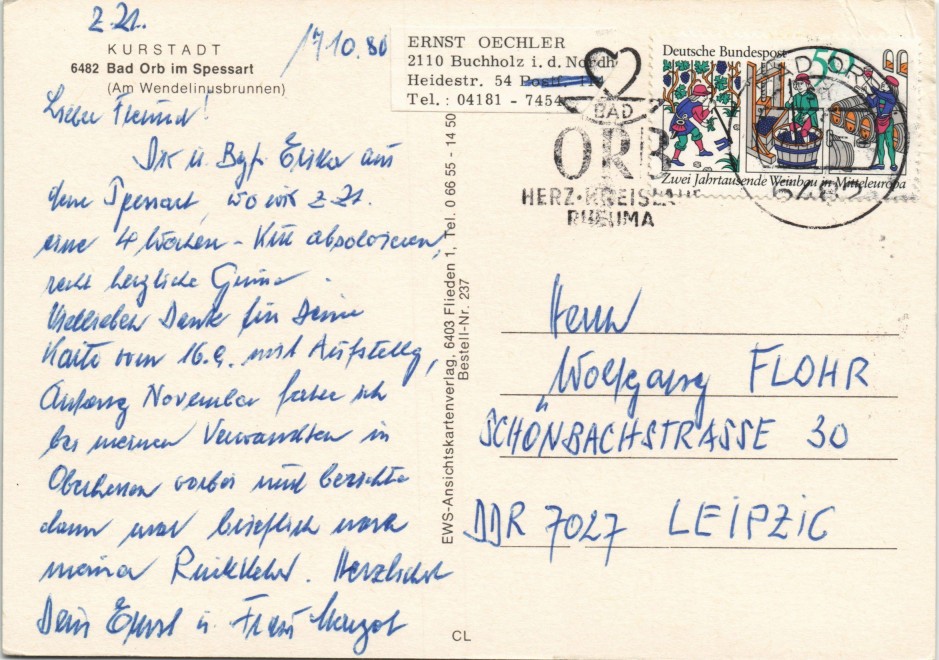 z. Zt.
17.10.80
KURSTADT
6482 Bad Orb im Spessart
(Am Wendelinusbrunnen)
Lieber Freund!
Dir u. Erika aus
dem Spessart, wo wir z. Zt.
eine 4 Wochen-Kur absolvieren,
recht herzliche Grüsse.
Vielleben Dank für Deine
Karte vom 16.9. mit Aufstellg,
Anfang November fahre ich
bei meinen Verwandten in
Oberhessen vorbei und berichte
dann mal brieflich nach
meiner Rückkehr. Herzlichst
Dein Ernst u. Frau Margot
EWS-Ansichtskartenverlag, 6403 Flieden 1, Tel. 0 66 55 - 14 50
Bestell-Nr. 237
CL
ERNST OECHLER
2110 Buchholz i. d. Nordh
Heidestr. 54 Postf.
Tel.: 04181 - 7454
BAD
ORB
HERZ·KREISLAUF
RHEUMA
Deutsche Bundespost 50
Zwei Jahrtausende Weinbau in Mitteleuropa
BAD ORB
6482
Herrn
Wolfgang FLOHR
SCHÖNBACHSTRASSE 30
DDR 7027 LEIPZIG